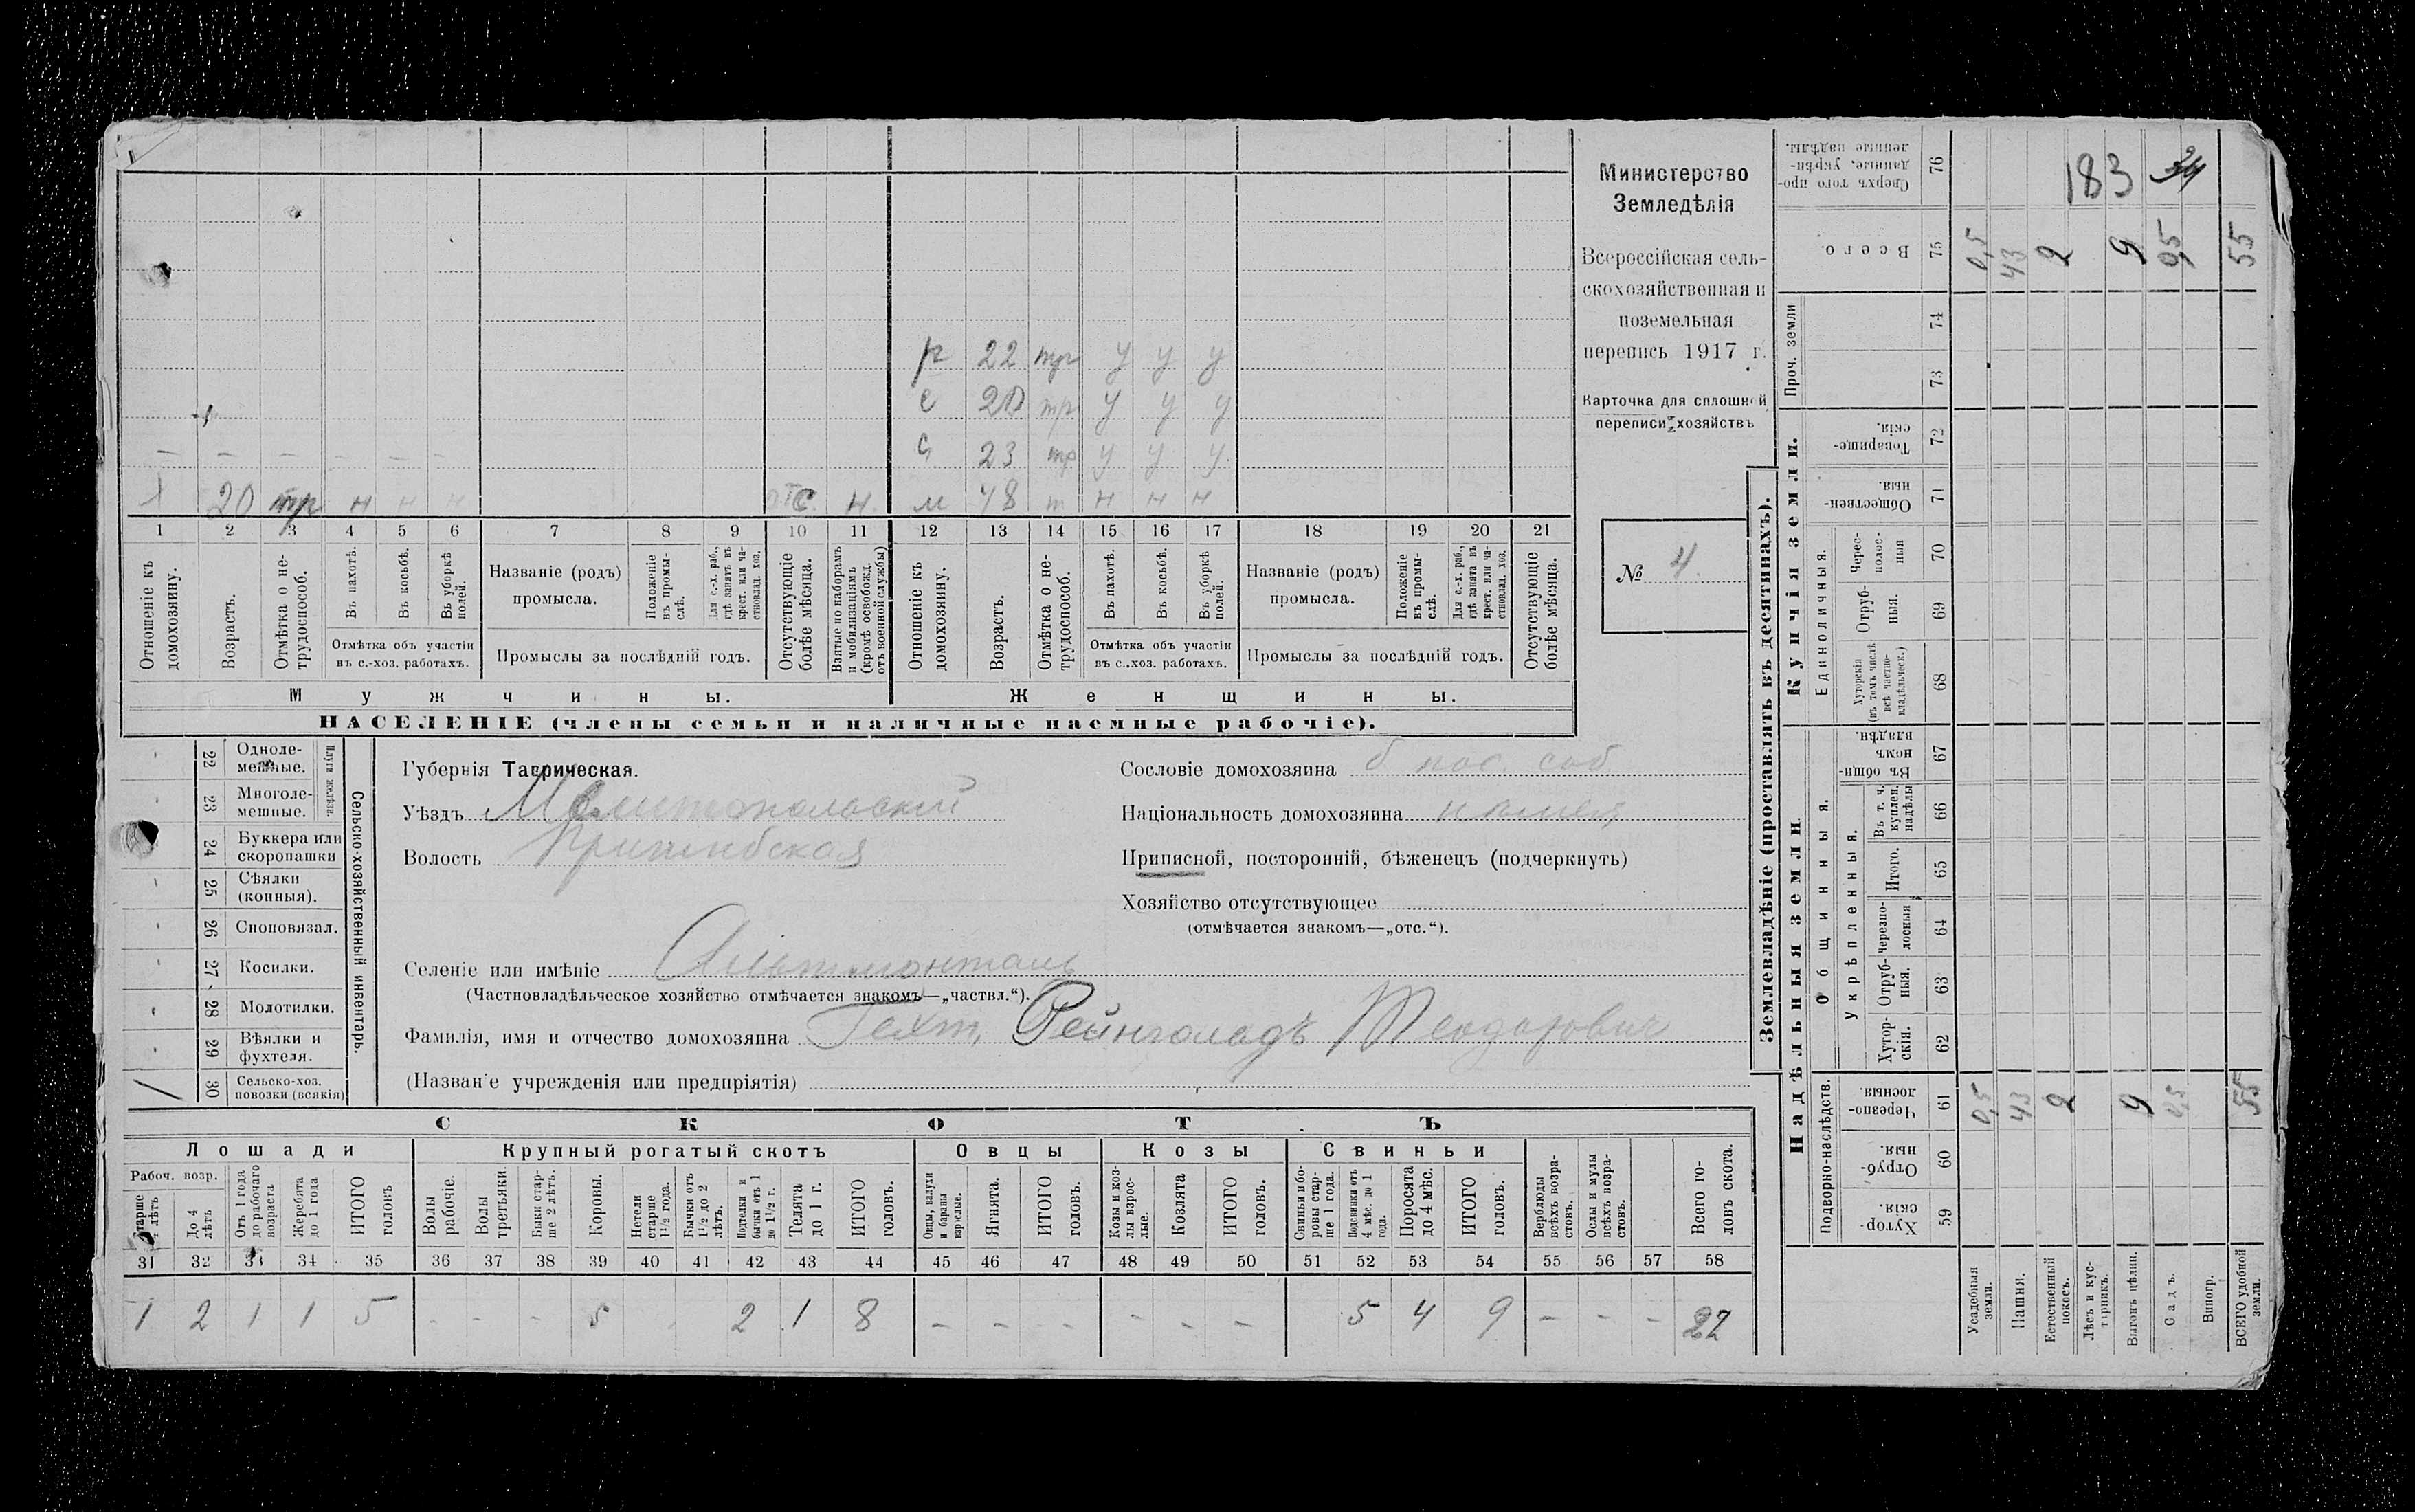 р 22 тр у у у
с 20 тр у у у
с 23 тр у у у
— — — — — —
Х 20 тр н н н отс. н. м 48 т н н н
1 2 3 4 5 6 7 8 9 10 11 12 13 14 15 16 17 18 19 20 21
Отношеніе къ домохозяину.
Возрастъ.
Отмѣтка о не-
трудоспособ.
Въ пахотѣ.
Въ косьбѣ.
Въ уборкѣ
полей.
Отмѣтка объ участіи
въ с.-хоз. работахъ.
Названіе (родъ)
промысла.
Положеніе
въ промы-
слѣ.
Для с.-х. раб.,
гдѣ занятъ въ
крест. или ча-
стновлад. хоз.
Промыслы за послѣдній годъ.
Отсутствующіе
болѣе мѣсяца.
Взятые по наборамъ
и мобилизаціямъ
(кромѣ освобожд.
отъ военной службы)
Отношеніе къ
домохозяину.
Возрастъ.
Отмѣтка о не-
трудоспособ.
Въ пахотѣ.
Въ косьбѣ.
Въ уборкѣ
полей.
Отмѣтка объ участіи
въ с..хоз. работахъ.
Названіе (родъ)
промысла.
Положеніе
въ промы-
слѣ.
Для с.-х. раб.,
гдѣ занята въ
крест. или ча-
стновлад. хоз.
Промыслы за послѣдній годъ.
Отсутствующіе
болѣе мѣсяца.
Мужчины.
Женщины.
НАСЕЛЕНІЕ (члены семьи и наличные наемные рабочіе).
Министерство
Земледѣлія
Всероссійская сель-
скохозяйственная и
поземельная
перепись 1917 г.
Карточка для сплошной
переписи хозяйствъ
№ 4.
22 Одноле-
мешные.
23 Многоле-
мешные.
Плуги желѣзн.
24 Буккера или
скоропашки
25 Сѣялки
(конныя).
26 Сноповязал.
27 Косилки.
28 Молотилки.
29 Вѣялки и
фухтеля.
/ 30 Сельско-хоз.
повозки (всякія)
Сельско-хозяйственный инвентарь.
Губернія Таврическая.
Уѣздъ Мелитопольскій
Волость Пришибская
Селеніе или имѣніе Альтмонталь
(Частновладѣльческое хозяйство отмѣчается знакомъ—„частвл.“).
Фамилія, имя и отчество домохозяина Гехт, Рейнгольдъ Теодорович
(Названіе учрежденія или предпріятія)
Сословіе домохозяина б пос. соб
Національность домохозяина немец
Приписной, посторонній, бѣженецъ (подчеркнуть)
Хозяйство отсутствующее
(отмѣчается знакомъ—„отс.“).
СКОТЪ
Лошади
Крупный рогатый скотъ
Овцы
Козы
Свиньи
Рабоч. возр.
Старше
4 лѣтъ
До 4
лѣтъ
Отъ 1 года
до рабочаго
возраста
Жеребята
до 1 года
ИТОГО
головъ
Волы
рабочіе.
Волы
третьяки.
Быки стар-
ше 2 лѣтъ.
Коровы.
Нетели
старше
1½ года.
Бычки отъ
1½ до 2
лѣтъ.
Подтелки и
бычки отъ 1
до 1½ г.
Телята
до 1 г.
ИТОГО
головъ.
Овцы, валухи
и бараны
взрослые.
Ягнята.
ИТОГО
головъ.
Козы и коз-
лы взрос-
лые.
Козлята
ИТОГО
головъ.
Свиньи и бо-
ровы стар-
ше 1 года.
Подсвинки отъ
4 мѣс. до 1
года.
Поросята
до 4 мѣс.
ИТОГО
головъ.
Верблюды
всѣхъ возра-
стовъ.
Ослы и мулы
всѣхъ возра-
стовъ.
Всего го-
ловъ скота.
31 32 33 34 35 36 37 38 39 40 41 42 43 44 45 46 47 48 49 50 51 52 53 54 55 56 57 58
1 2 1 1 5 - - - 5 2 1 8 - - - - - - 5 4 9 - - - 22
Землевладѣніе (проставлять въ десятинахъ).
Надѣльныя земли
Купчія земли.
Проч. земли
Подворно-наслѣдств.
Общинныя.
Укрѣпленныя.
Единоличныя.
Сверхъ того про-
данные, укрѣп-
ленные надѣлы.
76
183
Всего.
75 0,5 43 2 9 0,5 55
74
73
Товарище-
скія.
72
Обществен-
ныя.
71
Черес-
полос-
ныя
70
Отруб-
ныя.
69
Хуторскія
(въ томъ числѣ
всѣ частно-
владѣльческ.)
68
Въ общин-
номъ
владѣн.
67
Въ т. ч.
куплен.
надѣлы
66
Итого.
65
Черезпо-
лосныя
64
Отруб-
ныя.
63
Хутор-
скія.
62
Черезпо-
лосныя
61 0,5 43 2 9 0,5 55
Отруб-
ныя.
60
Хутор-
скія.
59
Усадебная
земля.
Пашня.
Естественный
покосъ.
Лѣсъ и кус-
тарникъ.
Выгонъ цѣлин.
Садъ.
Виногр.
ВСЕГО удобной
земли.